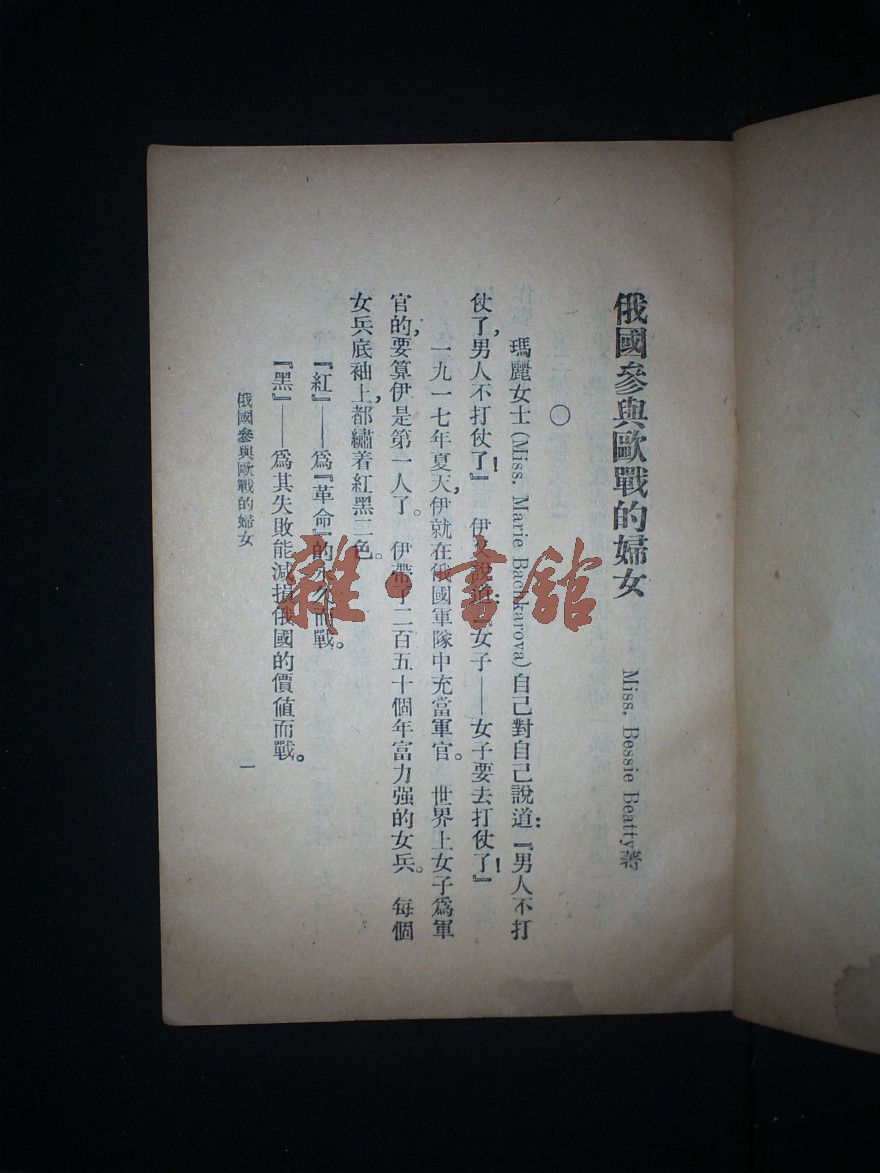 俄國參與歐戰的婦女 Miss. Bessie Beatty著
○
瑪麗女士(Miss. Marie Bachkarova)自己對自己說道:『男人不打
仗了,男人不打仗了!』 伊又說道:『女子——女子要去打仗了!』
一九一七年夏天,伊就在俄國軍隊中充當軍官。 世界上女子爲軍
官的,要算伊是第一人了。 伊帶了二百五十個年富力强的女兵。 每個
女兵底袖上,都繡着紅黑二色。
『紅』——爲『革命』的永久而戰。
『黑』——爲其失敗能減損俄國的價值而戰。
俄國參與歐戰的婦女
一
雜·書館